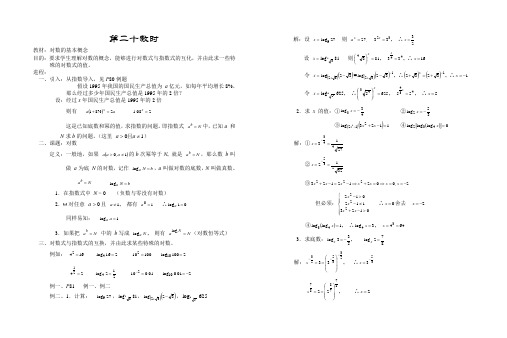 第二十教时
教材：对数的基本概念
目的：要求学生理解对数的概念，能够进行对数式与指数式的互化，并由此求一些特
殊的对数式的值。
过程：
一、引入：从指数导入，见 P80 例题
假设 1995 年我国的国民生产总值为 a 亿元，如每年平均增长 8%，
那么经过多少年国民生产总值是 1995 年的 2 倍？
设：经过 x 年国民生产总值是 1995 年的 2 倍
则有 a(1+8%)^x = 2a 1.08^x = 2
这是已知底数和幂的值，求指数的问题。即指数式 a^b = N 中，已知 a 和
N 求 b 的问题。（这里 a > 0 且 a ≠ 1）
二、课题：对数
定义：一般地，如果 a(a > 0, a ≠ 1) 的 b 次幂等于 N, 就是 a^b = N，那么数 b 叫
做 a 为底 N 的对数，记作 log_a N = b，a 叫做对数的底数，N 叫做真数。
a^b = N log_a N = b
1．在指数式中 N > 0 （负数与零没有对数）
2．对任意 a > 0 且 a ≠ 1，都有 a^0 = 1 ∴log_a 1 = 0
同样易知：log_a a = 1
3．如果把 a^b = N 中的 b 写成 log_a N，则有 a^{log_a N} = N （对数恒等式）
三、对数式与指数式的互换，并由此求某些特殊的对数。
例如：4^2 = 16 log_4 16 = 2 10^2 = 100 log_10 100 = 2
4^{1/2} = 2 log_4 2 = 1/2 10^{-2} = 0.01 log_10 0.01 = -2
例一、P81 例一、例二
例二、1．计算：log_9 27，log_{∜3} 81，log_{(2+√3)}(2-√3)，
解：设 x = log_9 27 则 9^x = 27, 3^{2x} = 3^3, ∴x = 3/2
设 x = log_{∜3} 81 则(∜3)^x = 81, 3^{x/4} = 3^4, ∴x = 16
令 x = log_{(2+√3)}(2-√3) = log_{(2+√3)}(2+√3)^{-1}, ∴(2+√3)^x = (2+√3)^{-1}, ∴x = -1
2．求 x 的值：①
③log_{(2x²-1)}(3x²+2x-1) = 1 ④log_2[log_3(log_4 x)] = 0
解：①
②
③3x²+2x-1 = 2x²-1 ⇒ x²+2x = 0 ⇒ x = 0, x = -2
但必须：{2x²-1 > 0, 2x²-1 ≠ 1, 3x²+2x-1 > 0 ∴x = 0 舍去 x = -2
④log_3(log_4 x) = 1, ∴log_4 x = 3, x = 4^3 = 64
3．求底数：
解：
∴x = 2